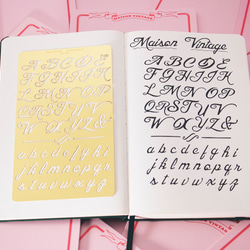 MAISON VINTAGE
A B C D E F
G H I J K
L M N O P
Q R S T U V
W X Y Z &
a b c d e f g h i
j k l m n o p q r
s t u v w x y z
Maison Vintage
A B C D E F
G H I J K
L M N O P
Q R S T U V
W X Y Z &
a b c d e f g h i
j k l m n o p q r
s t u v w x y z